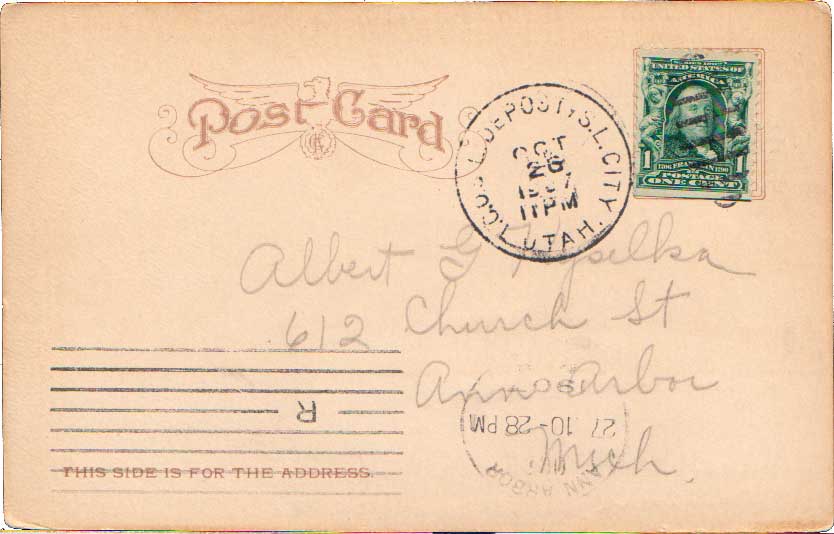 Post Card
SERIES 1902
UNITED STATES OF
AMERICA
1 1706 FRANKLIN 1790 1
POSTAGE
ONE CENT
DEPOSIT, S.L. CITY,
OCT
26
1907
11 PM
UTAH.
Albert G
612 Church St
Ann Arbor
Mich.
R
27 10-28 PM
ANN ARBOR
THIS SIDE IS FOR THE ADDRESS.